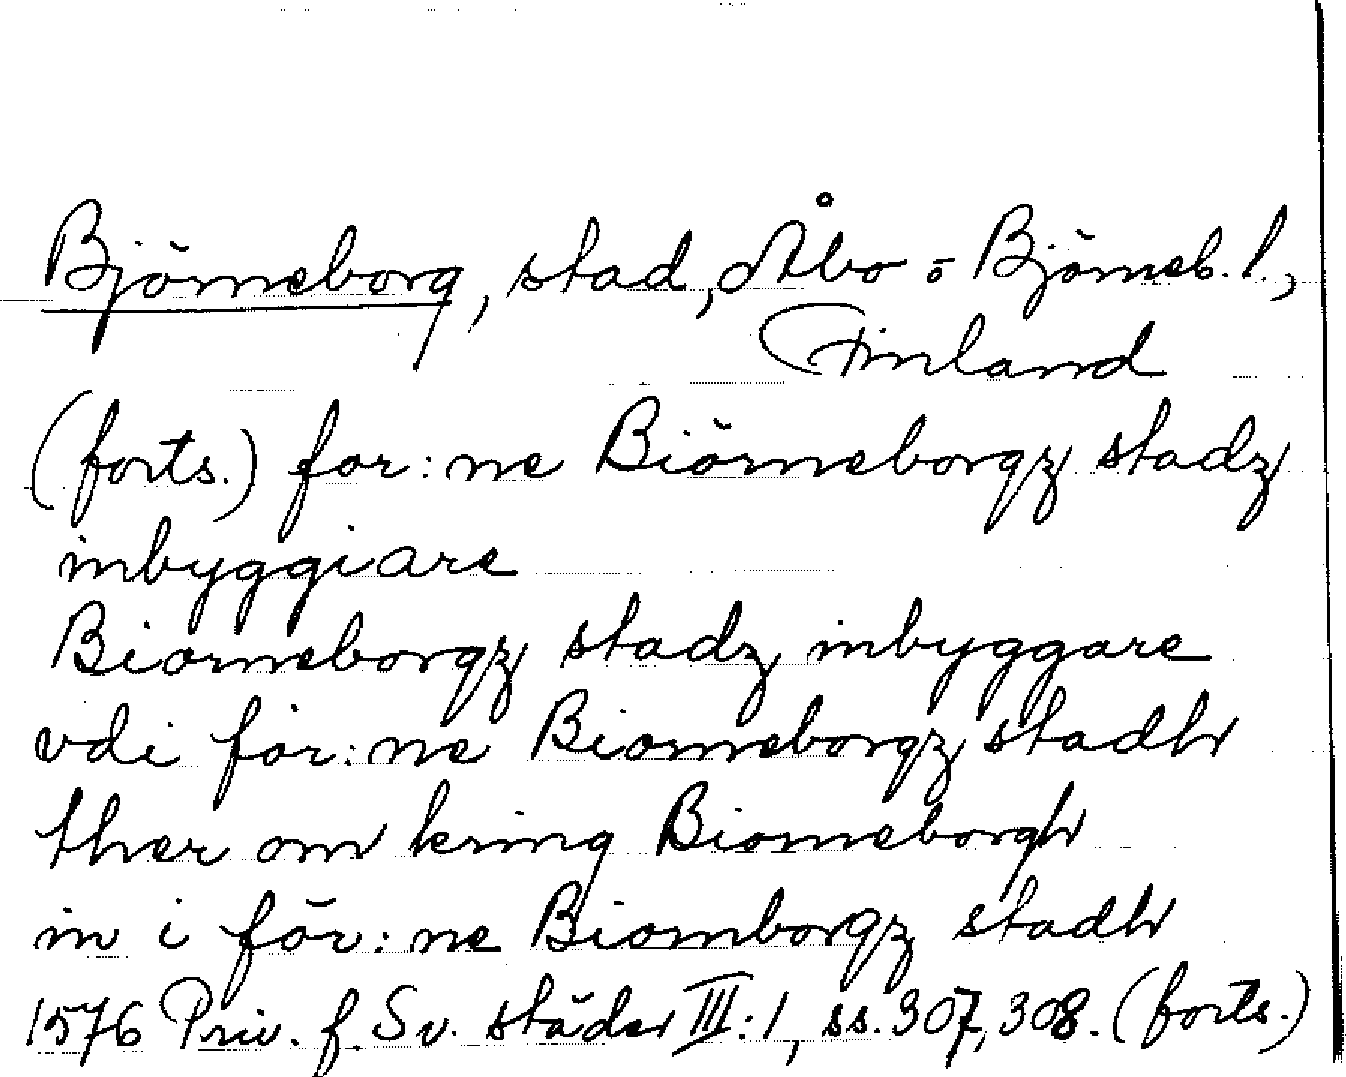 Björneborg, stad, Åbo o Björneb. l.,
Finland
(forts.) for:ne Biörneborgz stadz
inbyggiare
Biorneborgz stadz inbyggare
vdi för:ne Biorneborgz stadh
ther om kring Biorneborgh
in i för:ne Biornborgz stadh
1576 Priv. f. Sv. städer III:1, ss. 307, 308. (forts.)